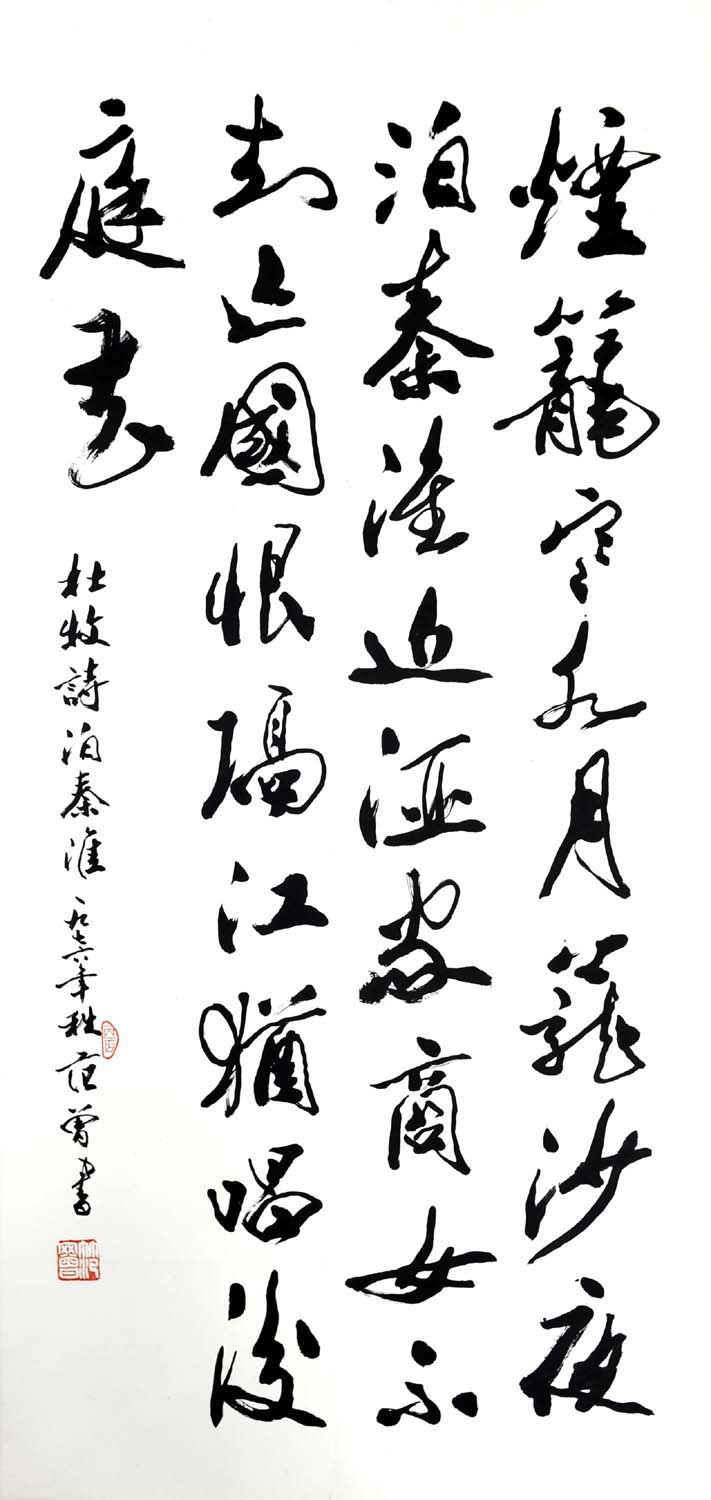 煙籠寒水月籠沙夜
泊秦淮近酒家商女不
知亡國恨隔江猶唱後
庭花
杜牧詩泊秦淮一九七六年秋范曾書
范曾